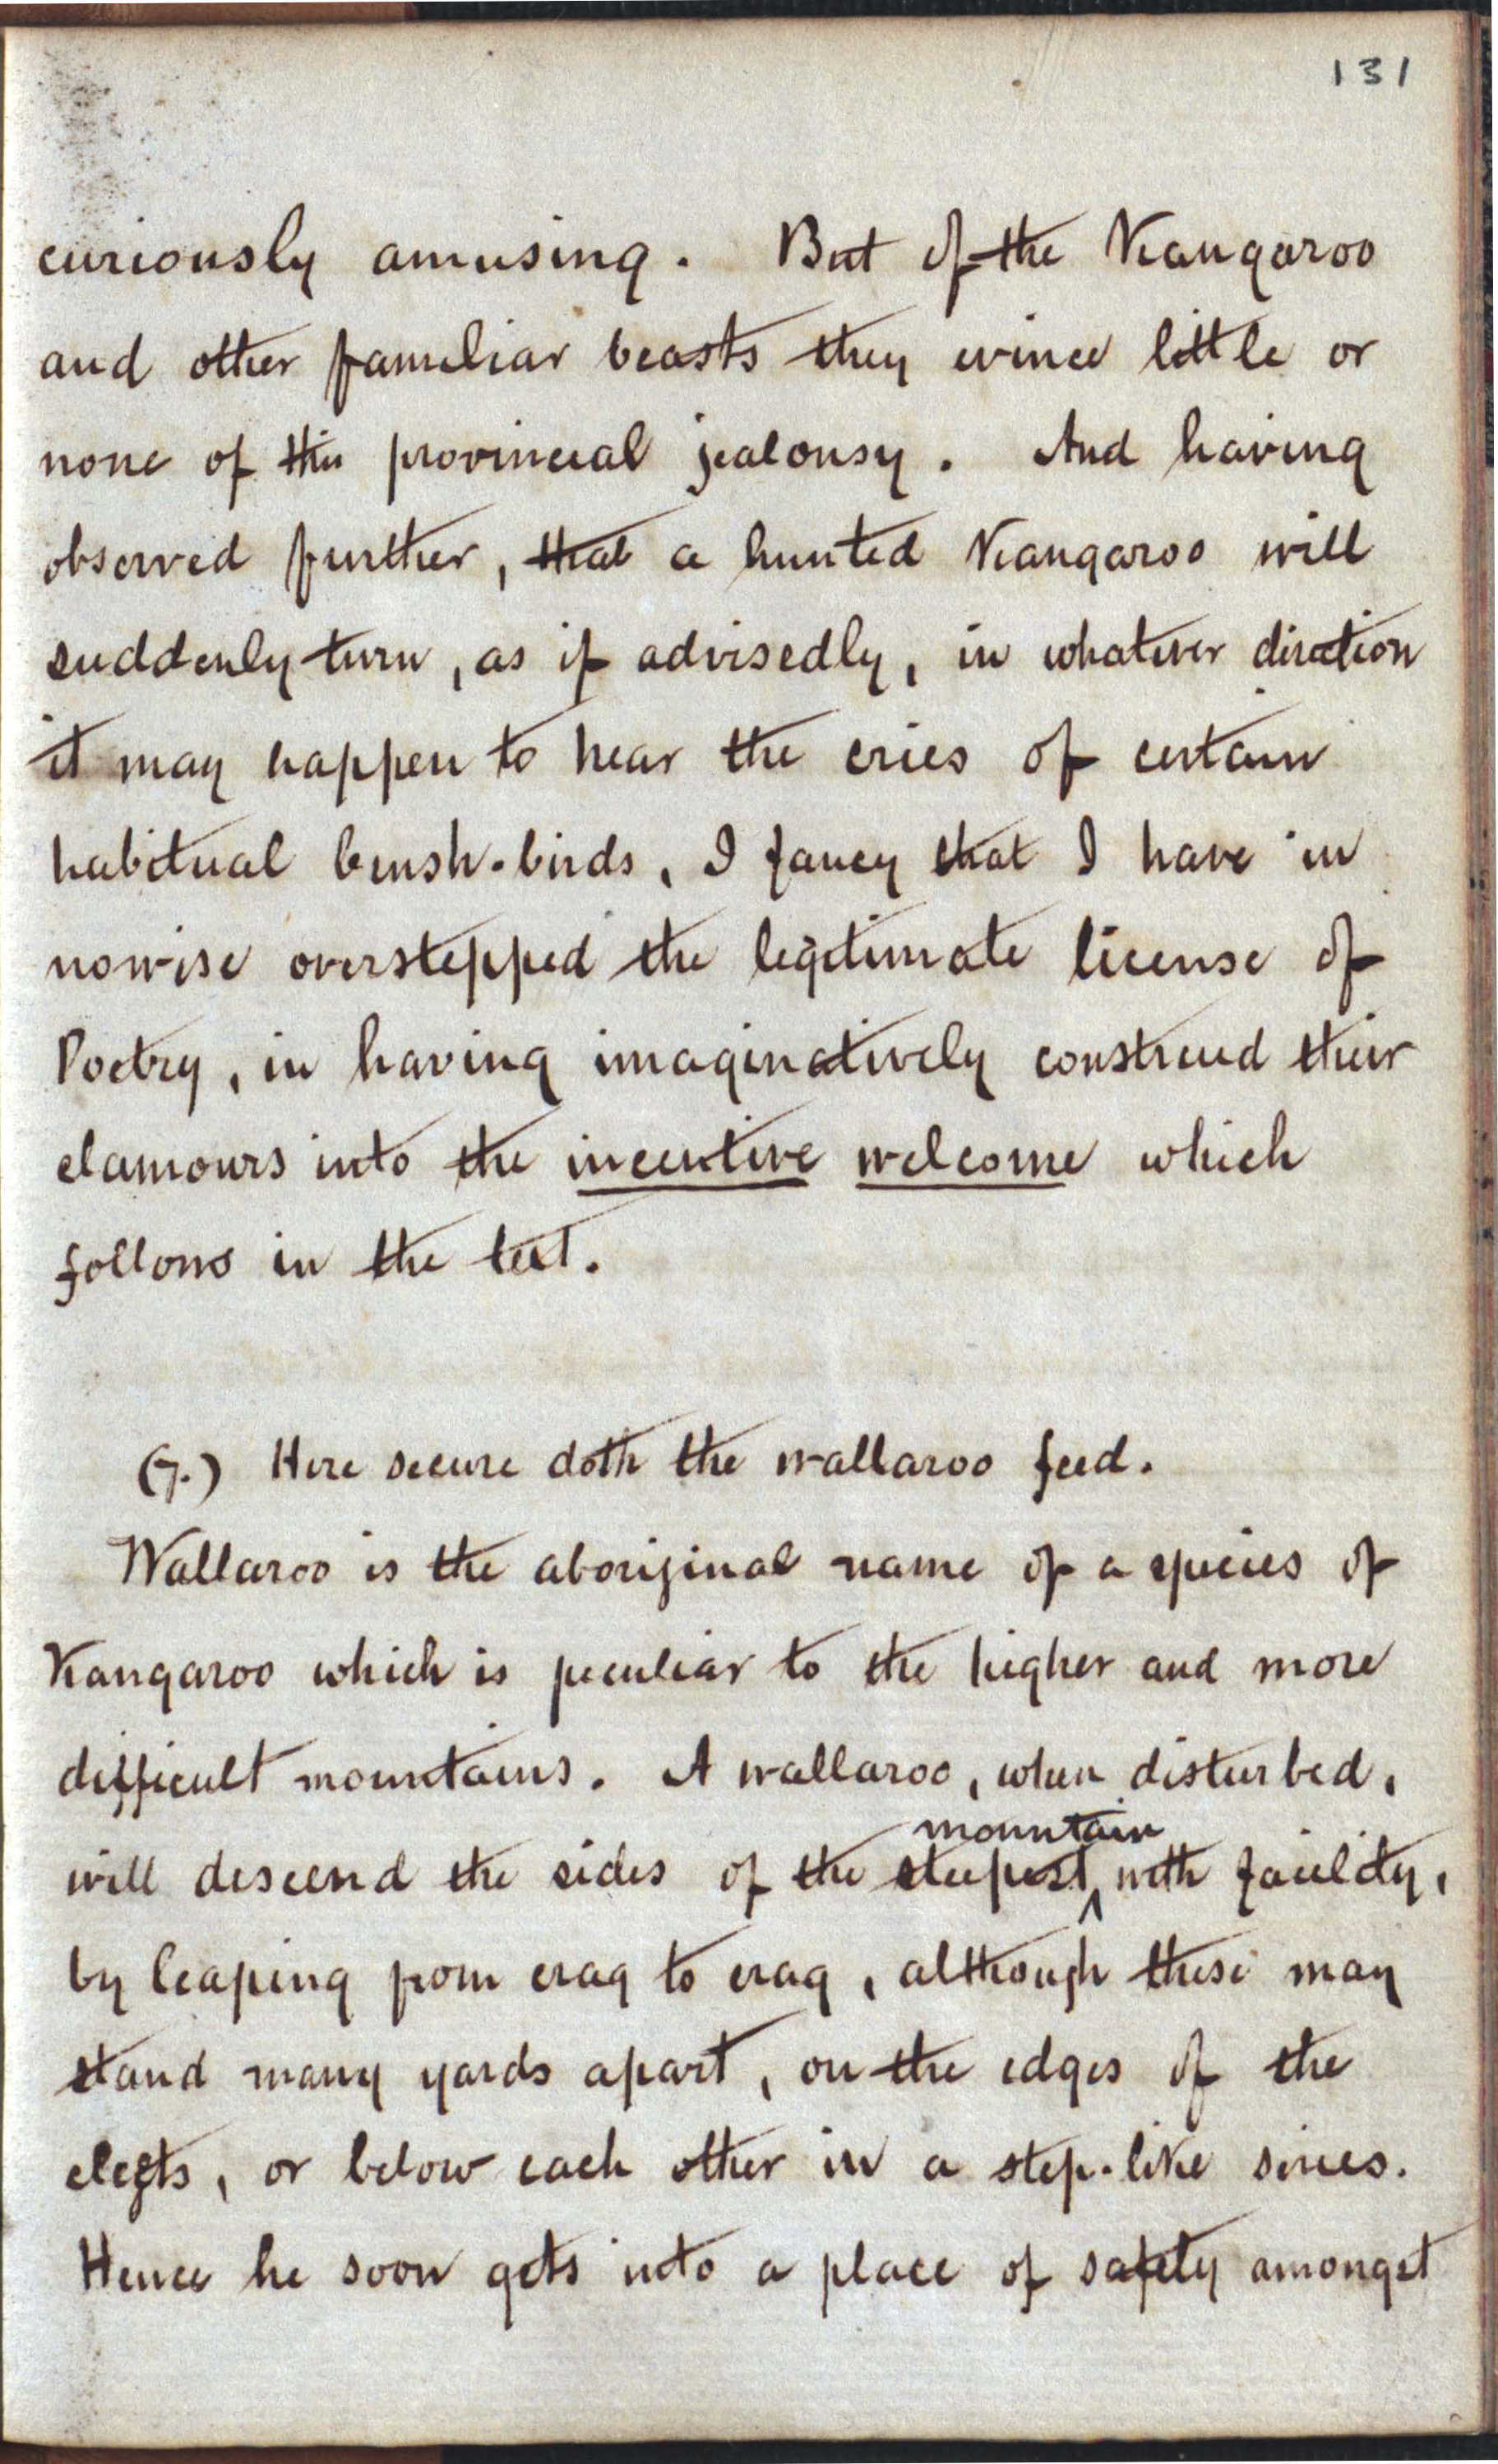 131
curiously amusing. But of the Kangaroo
and other familiar beasts they evince little or
none of this provincial jealousy. And having
observed further, that a hunted Kangaroo will
suddenly turn, as if advisedly, in whatever direction
it may happen to hear the cries of certain
habitual bush-birds, I fancy that I have in
nowise overstepped the legitimate license of
Poetry, in having imaginatively construed their
clamours into the incentive welcome which
follows in the text.
(7.) Here secure doth the wallaroo feed.
Wallaroo is the aboriginal name of a species of
Kangaroo which is peculiar to the higher and more
difficult mountains. A wallaroo, when disturbed,
will descend the sides of the steepest mountain with facility,
by leaping from crag to crag, although these may
stand many yards apart, on the edges of the
clefts, or below each other in a step-like series.
Hence he soon gets into a place of safety amongst